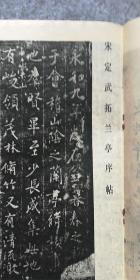 宋定武拓兰亭序帖
永和九年歲在癸丑暮春之
于會稽山陰之蘭亭脩禊
賢畢至少長咸集此地
有領茂林脩竹又有清流